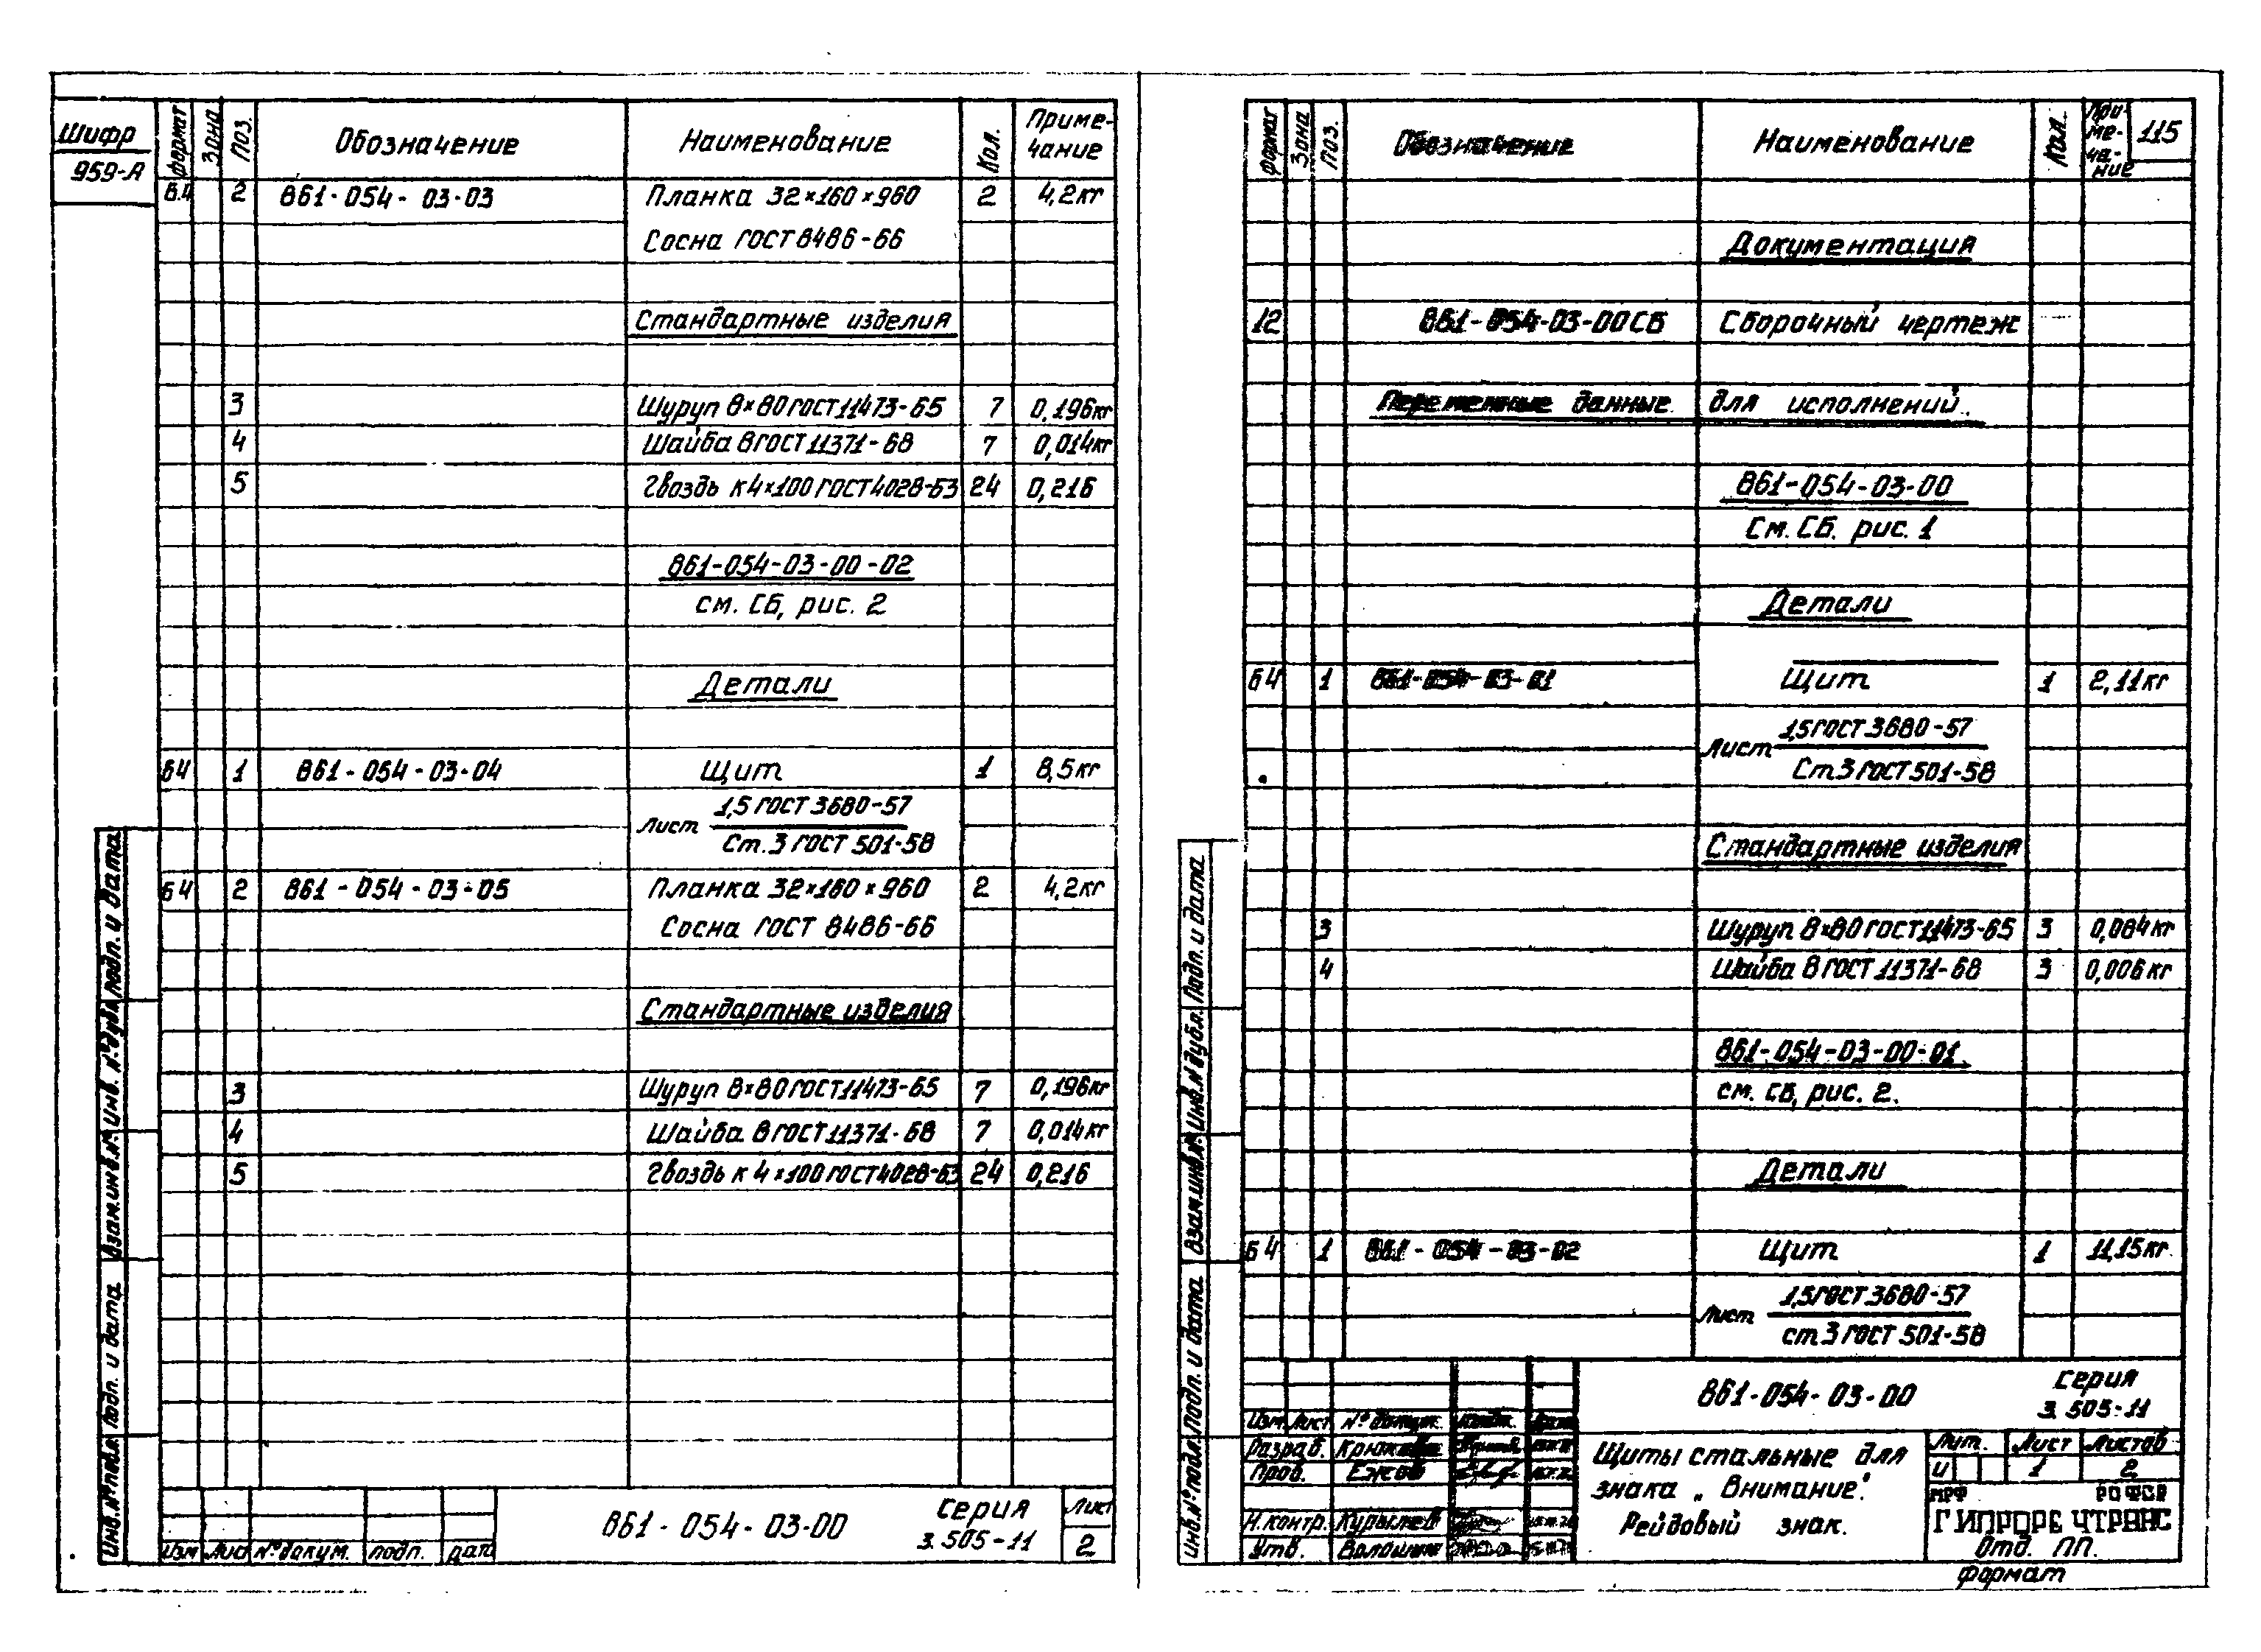 Шифр
959-А
формат Зона Поз. Обозначение Наименование Кол. Приме-
чание
Б4 2 861-054-03-03 Планка 32×160×960 2 4,2кг
Сосна ГОСТ 8486-66
Стандартные изделия
3 Шуруп 8×80 ГОСТ 11473-65 7 0,196кг
4 Шайба 8 ГОСТ 11371-68 7 0,014кг
5 Гвоздь К4×100 ГОСТ 4028-63 24 0,216
861-054-03-00-02
см. СБ, рис. 2
Детали
Б4 1 861-054-03-04 Щит 1 8,5кг
Лист 1,5 ГОСТ 3680-57
Ст.3 ГОСТ 501-58
Б4 2 861-054-03-05 Планка 32×160×960 2 4,2кг
Сосна ГОСТ 8486-66
Стандартные изделия
3 Шуруп 8×80 ГОСТ 11473-65 7 0,196кг
4 Шайба 8 ГОСТ 11371-68 7 0,014кг
5 Гвоздь К4×100 ГОСТ 4028-63 24 0,216
Инв.№подл. Подп. и дата Взам.инв.№ Инв.№дубл. Подп. и дата
Изм Лист №докум. подп. дат
861-054-03-00
серия
3.505-11
Лист
2
формат Зона Поз. Обозначение Наименование Кол. При-
ме-
ча-
ние
115
Документация
12 861-054-03-00СБ Сборочный чертеж
Переменные данные для исполнений
861-054-03-00
См. СБ. рис. 1
Детали
Б4 1 861-054-03-01 Щит 1 2,11кг
Лист 1,5 ГОСТ 3680-57
Ст3 ГОСТ 501-58
Стандартные изделия
3 Шуруп 8×80 ГОСТ 11473-65 3 0,084кг
4 Шайба 8 ГОСТ 11371-68 3 0,006кг
861-054-03-00-01
см. СБ, рис. 2.
Детали
Б4 1 861-054-03-02 Щит 1 11,15кг
Лист 1,5 ГОСТ 3680-57
ст3 ГОСТ 501-58
Инв.№подл. Подп. и дата Взам.инв.№ Инв.№дубл. Подп. и дата
861-054-03-00
серия
3.505-11
Изм Лист № докум.
Разраб.
Пров. Ежов
Н.контр. Курылев
Утв. Волошин
Щиты стальные для
знака „Внимание".
Рейдовый знак.
Лит. Лист Листов
И 1 2
МРФ РСФСР
ГИПРОРЕЧТРАНС
Отд. ПП.
Формат